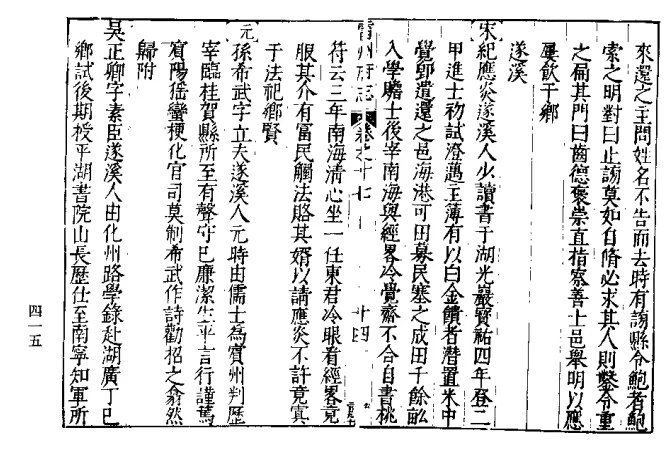 來還之主問姓名不告而去時有謗縣令鮑者鮑
索之明對曰止謗莫如自脩必求其人則鑿令重
之扁其門曰齒德褒崇直指察善士邑舉明以應
屢飲于鄉
遂溪
宋紀應炎遂溪人少讀書于湖光巖寶祐四年登二
甲進士初試澄邁主簿有以白金饋者潛置米中
覺卽遣還之邑海港可田募民塞之成田千餘畝
入學贍士後宰南海與經畧冷覺齋不合自書桃
符云三年南海清心坐一任東君冷眼看經畧竟
服其介有富民觸法賂其婿以請應炎不許竟寘
于法祀鄉賢
雷州府志 卷之十七 十四
元
孫希武字立夫遂溪人元時由儒士為賓州判歷
宰臨桂賀縣所至有聲守已廉潔生平言行謹篤
賓陽徭蠻梗化官司莫制希武作詩勸招之翕然
歸附
吳正卿字素臣遂溪人由化州路學錄赴湖廣丁巳
鄉試後期授平湖書院山長歷仕至南寧知軍所
四一五